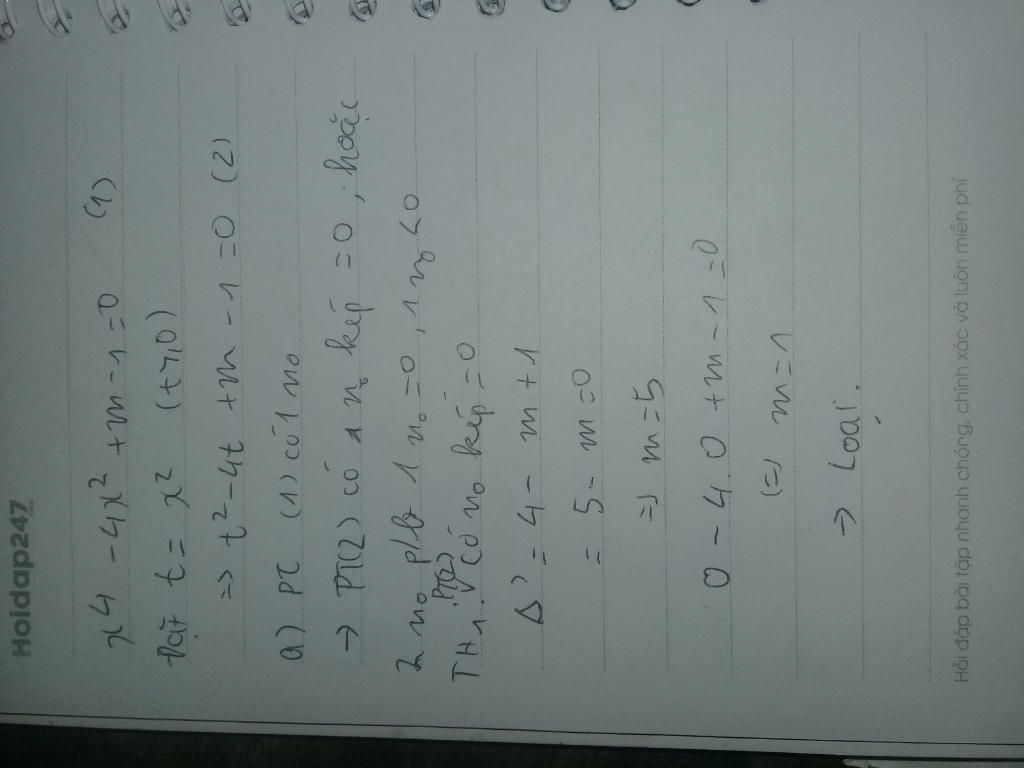 Hoidap247
x4 - 4x² + m - 1 = 0 (1)
Đặt t = x² (t ≥ 0)
=> t² - 4t + m - 1 = 0 (2)
a) PT (1) có 1 no
→ PT(2) có 1 no kép = 0, hoặc
2 no pb 1 no = 0, 1 no < 0
TH1. PT(2) có no kép = 0
Δ' = 4 - m + 1
= 5 - m = 0
=> m = 5
0 - 4.0 + m - 1 = 0
(=) m = 1
→ Loại.
Hỏi đáp bài tập nhanh chóng, chính xác và luôn miễn phí